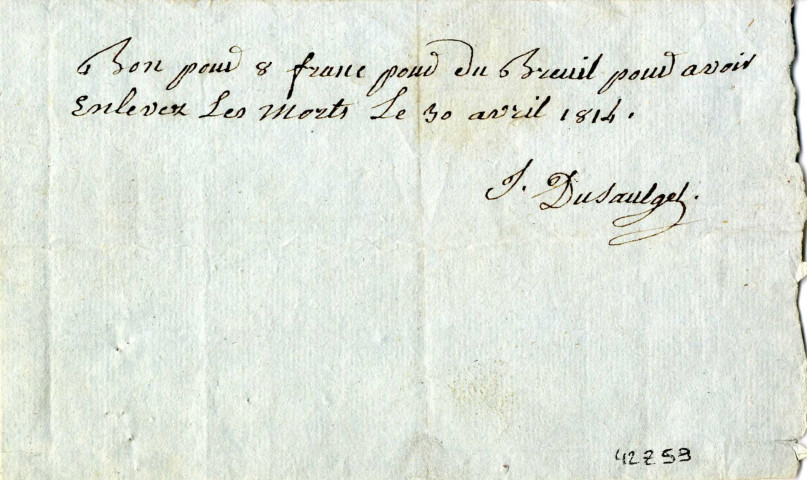 Bon pour 8 franc pour du Breuil pour avoir
Enlevez Les morts Le 30 avril 1814.
J. Dusaulget.
42Z59